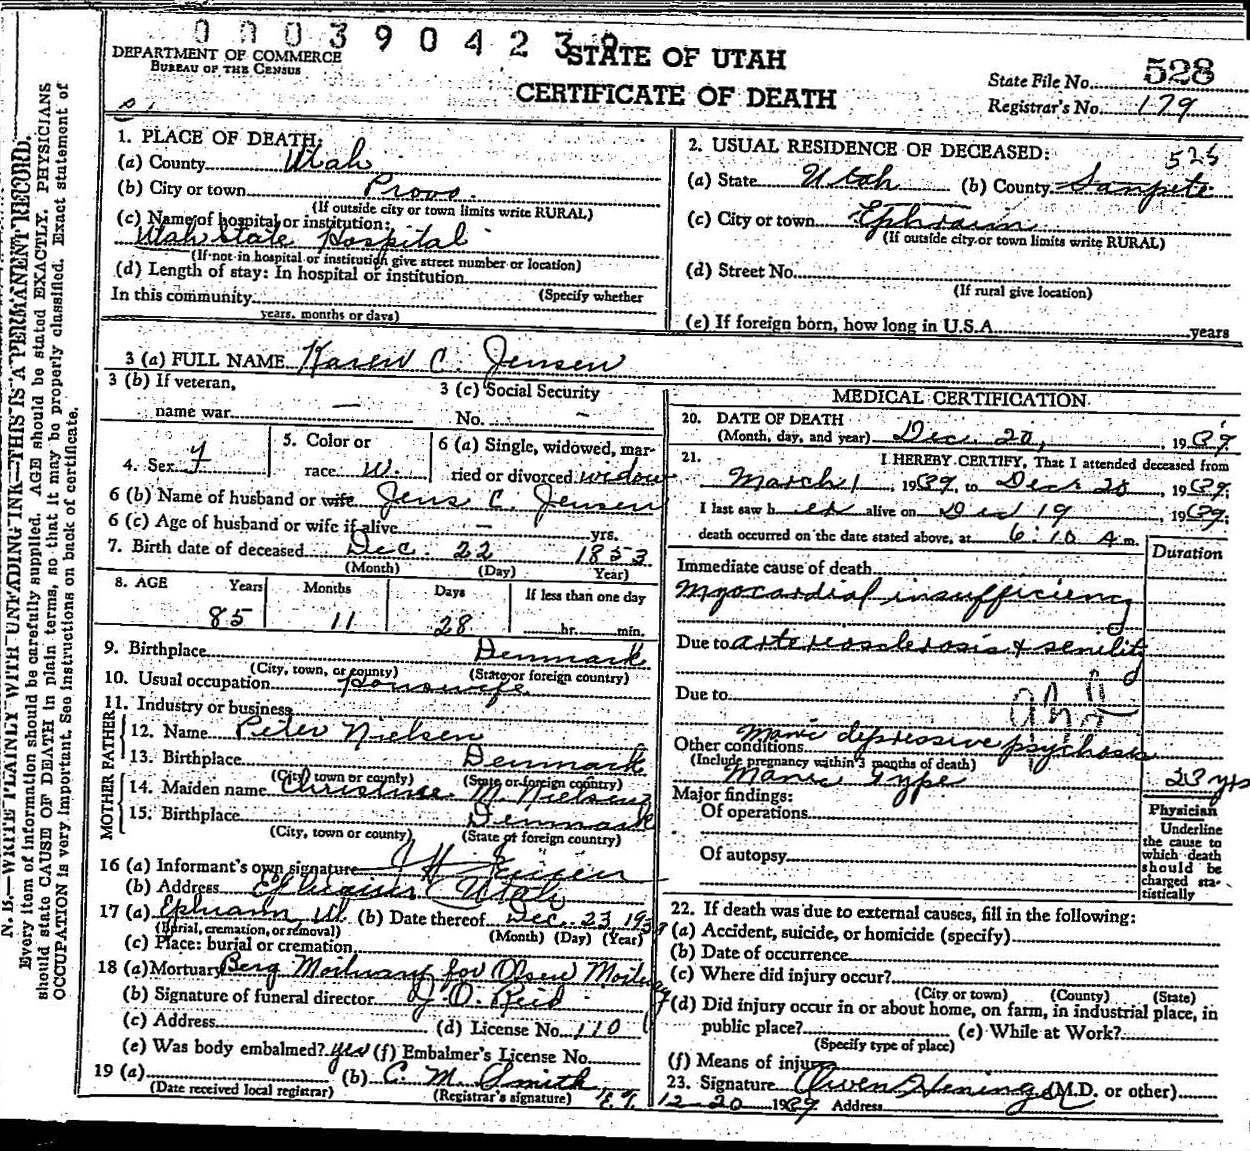 0003904239
DEPARTMENT OF COMMERCE
BUREAU OF THE CENSUS
STATE OF UTAH
CERTIFICATE OF DEATH
State File No. 528
Registrar's No. 179
N. B.—WRITE PLAINLY WITH UNFADING INK—THIS IS A PERMANENT RECORD.
Every item of information should be carefully supplied. AGE should be stated EXACTLY. PHYSICIANS
should state CAUSE OF DEATH in plain terms, so that it may be properly classified. Exact statement of
OCCUPATION is very important. See instructions on back of certificate.
1. PLACE OF DEATH:
(a) County Utah
(b) City or town Provo
(If outside city or town limits write RURAL)
(c) Name of hospital or institution:
Utah State Hospital
(If not in hospital or institution give street number or location)
(d) Length of stay: In hospital or institution
In this community (Specify whether
years, months or days)
2. USUAL RESIDENCE OF DECEASED: 525
(a) State Utah (b) County Sanpete
(c) City or town Ephraim
(If outside city or town limits write RURAL)
(d) Street No.
(If rural give location)
(e) If foreign born, how long in U.S.A. years
3 (a) FULL NAME Karen C. Jensen
3 (b) If veteran,
name war —
3 (c) Social Security
No. —
4. Sex F
5. Color or
race W.
6 (a) Single, widowed, mar-
ried or divorced widow
6 (b) Name of husband or wife Jens C. Jensen
6 (c) Age of husband or wife if alive — yrs.
7. Birth date of deceased Dec. 22 1853
(Month) (Day) Year)
8. AGE Years Months Days If less than one day
85 11 28 hr. min.
9. Birthplace Denmark
(City, town, or county) (State or foreign country)
10. Usual occupation Housewife
11. Industry or business
FATHER
12. Name Peter Nielsen
13. Birthplace Denmark
(City town or county) (State or foreign country)
MOTHER
14. Maiden name Christine N. Nielsen
15. Birthplace Denmark
(City, town, or county) (State of foreign country)
16 (a) Informant's own signature J H Jensen
(b) Address Ephraim Utah
17 (a) Ephraim, Ut. (b) Date thereof Dec. 23 1939
(Burial, cremation, or removal) (Month) (Day) (Year)
(c) Place: burial or cremation
18 (a) Mortuary Berg Mortuary for Olsen Mortuary
(b) Signature of funeral director J. O. Reid
(c) Address (d) License No. 110
(e) Was body embalmed? yes (f) Embalmer's License No.
19 (a) (b) C. M. Smith
(Date received local registrar) (Registrar's signature)
MEDICAL CERTIFICATION
20. DATE OF DEATH
(Month, day, and year) Dec. 20, 1939
21. I HEREBY CERTIFY, That I attended deceased from
March 1, 1939, to Dec 20, 1939;
I last saw her alive on Dec 19, 1939;
death occurred on the date stated above, at 6:10 A m.
Duration
Immediate cause of death
Myocardial insufficiency
Due to arteriosclerosis & senility
Due to
Other conditions Manic depressive psychosis
(Include pregnancy within 3 months of death)
Manic Type 23 yrs
Major findings:
Of operations
Of autopsy
Physician
Underline
the cause to
which death
should be
charged sta-
tistically
22. If death was due to external causes, fill in the following:
(a) Accident, suicide, or homicide (specify)
(b) Date of occurrence
(c) Where did injury occur?
(City or town) (County) (State)
(d) Did injury occur in or about home, on farm, in industrial place, in
public place? (e) While at Work?
(Specify type of place)
(f) Means of injury
23. Signature Owen Heninger (M.D. or other)
12-20 1939 Address